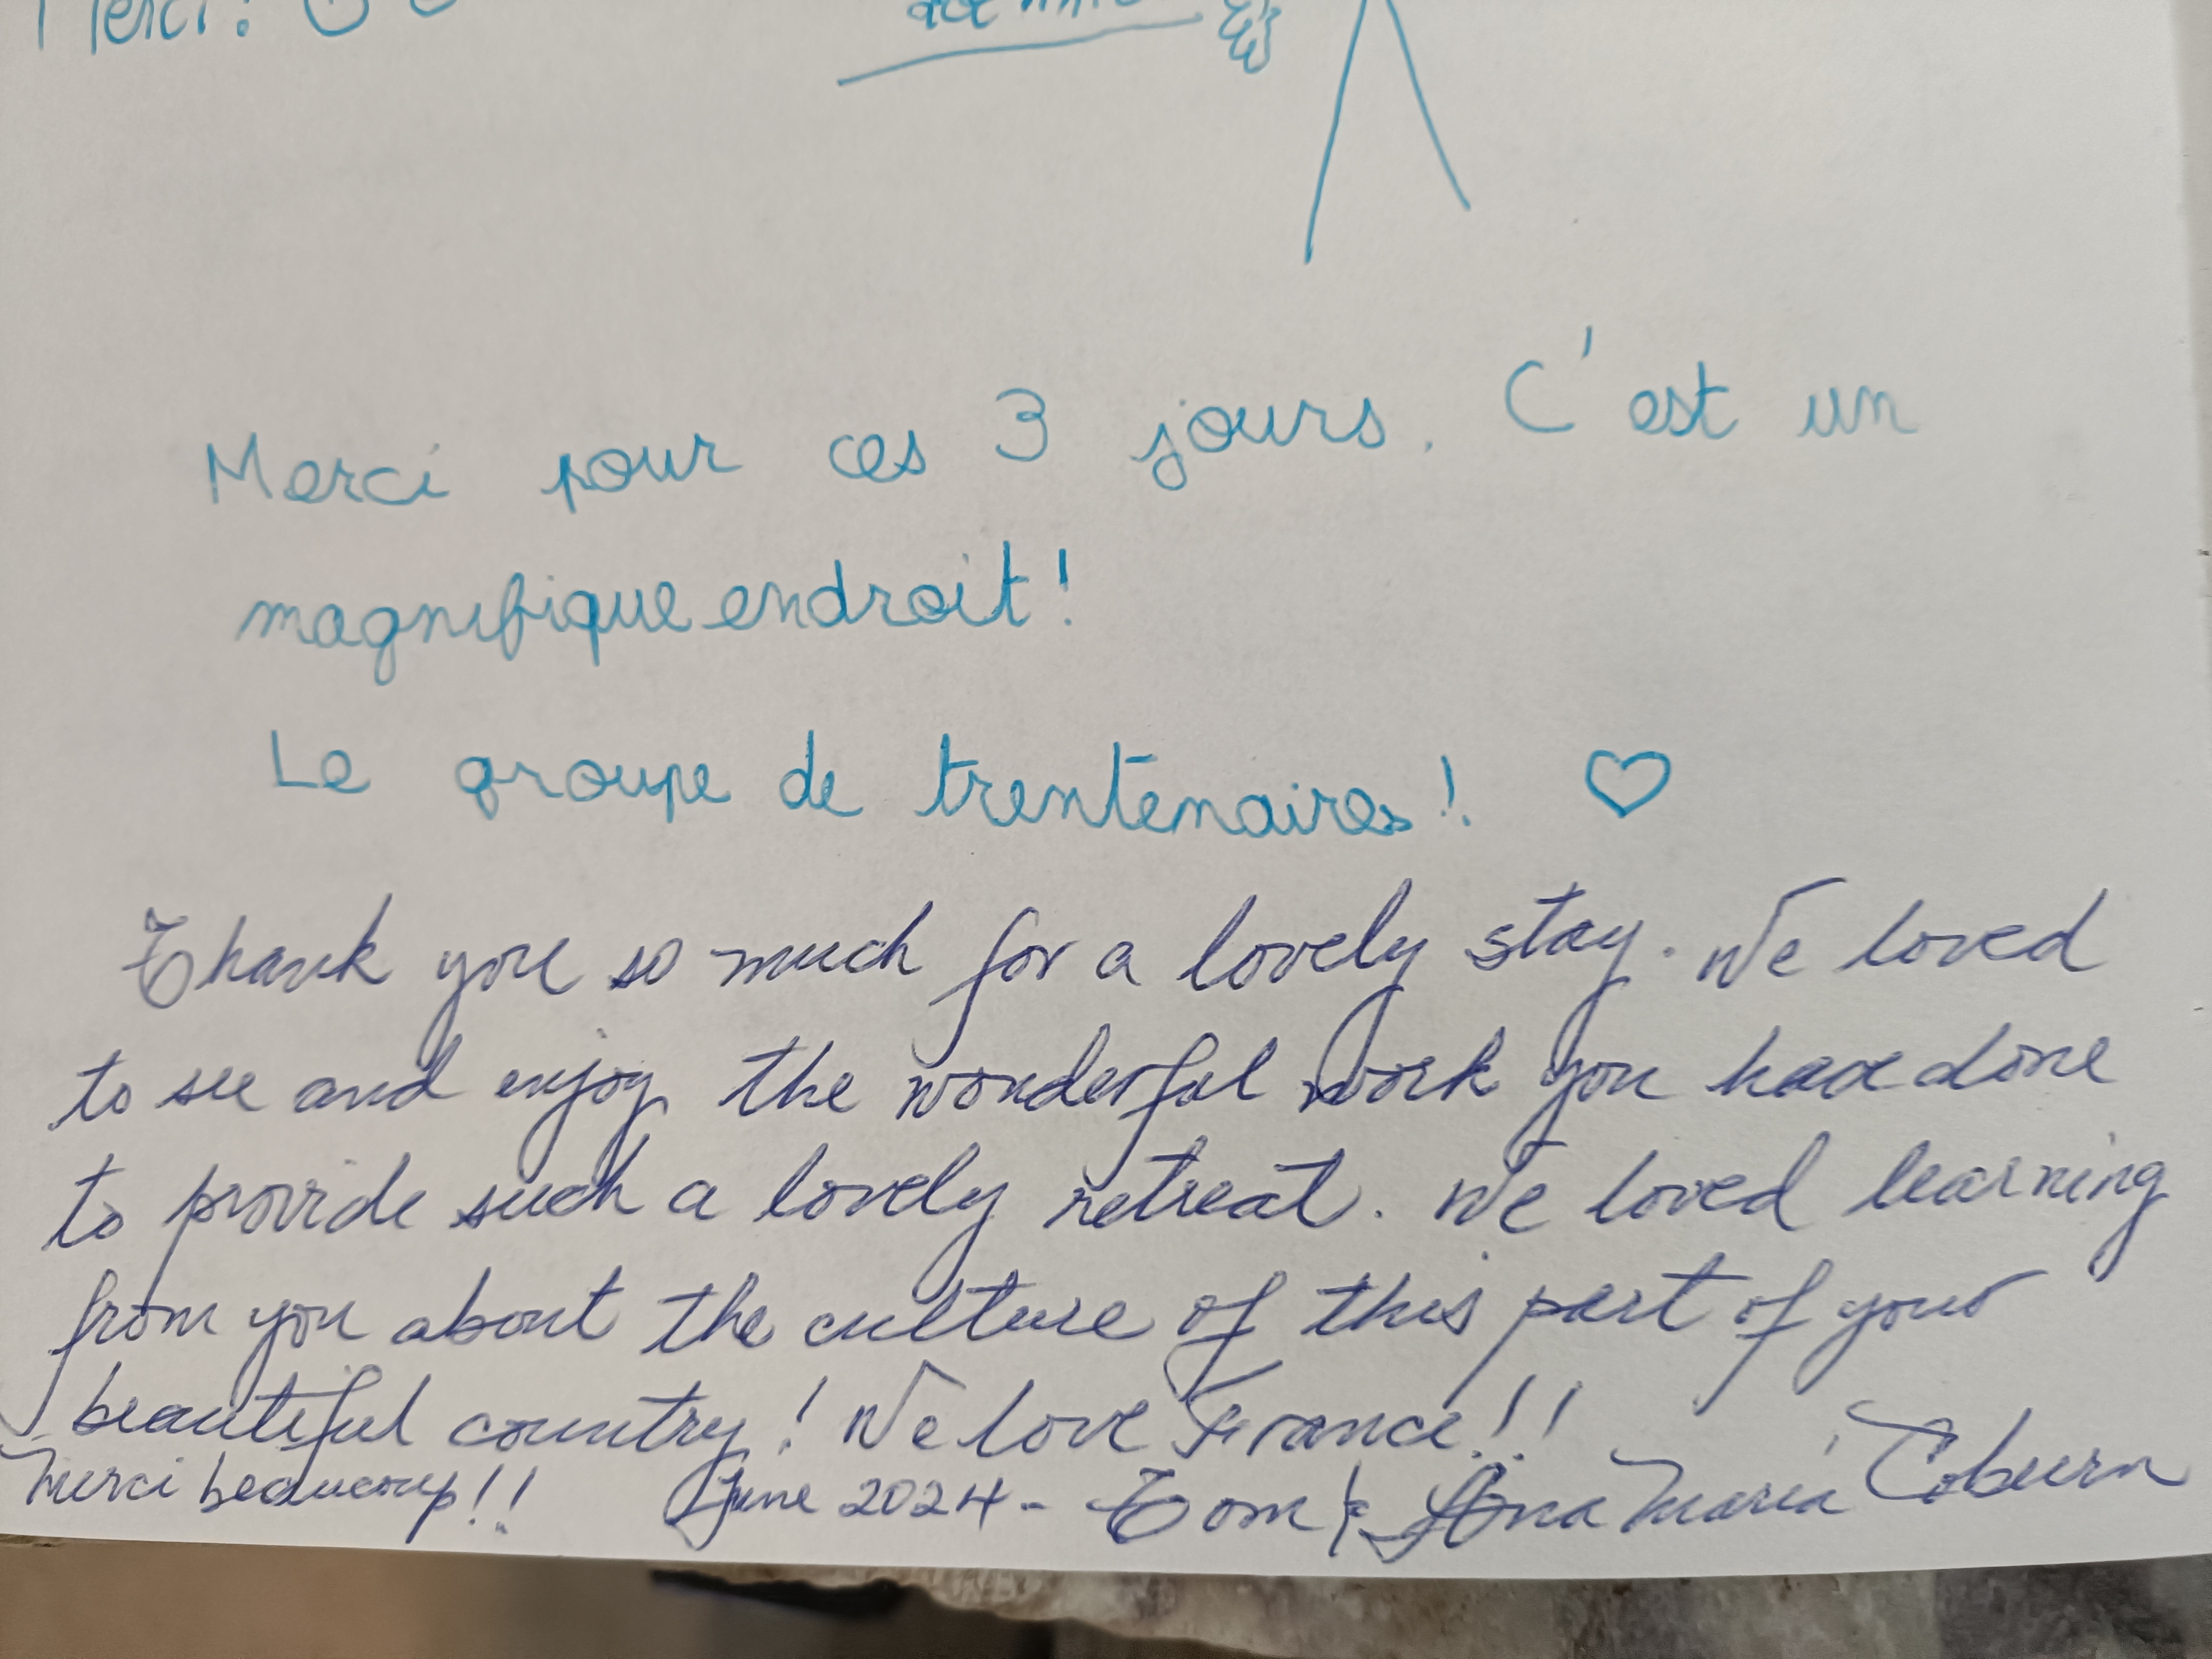 Merci !
Merci pour ces 3 jours. C'est un
magnifique endroit !
Le groupe de trentenaires ! ♡
Thank you so much for a lovely stay. We loved
to see and enjoy the wonderful work you have done
to provide such a lovely retreat. We loved learning
from you about the culture of this part of your
beautiful country! We love France!!
Merci beaucoup!! June 2024 - Tom & Ana Maria Coburn